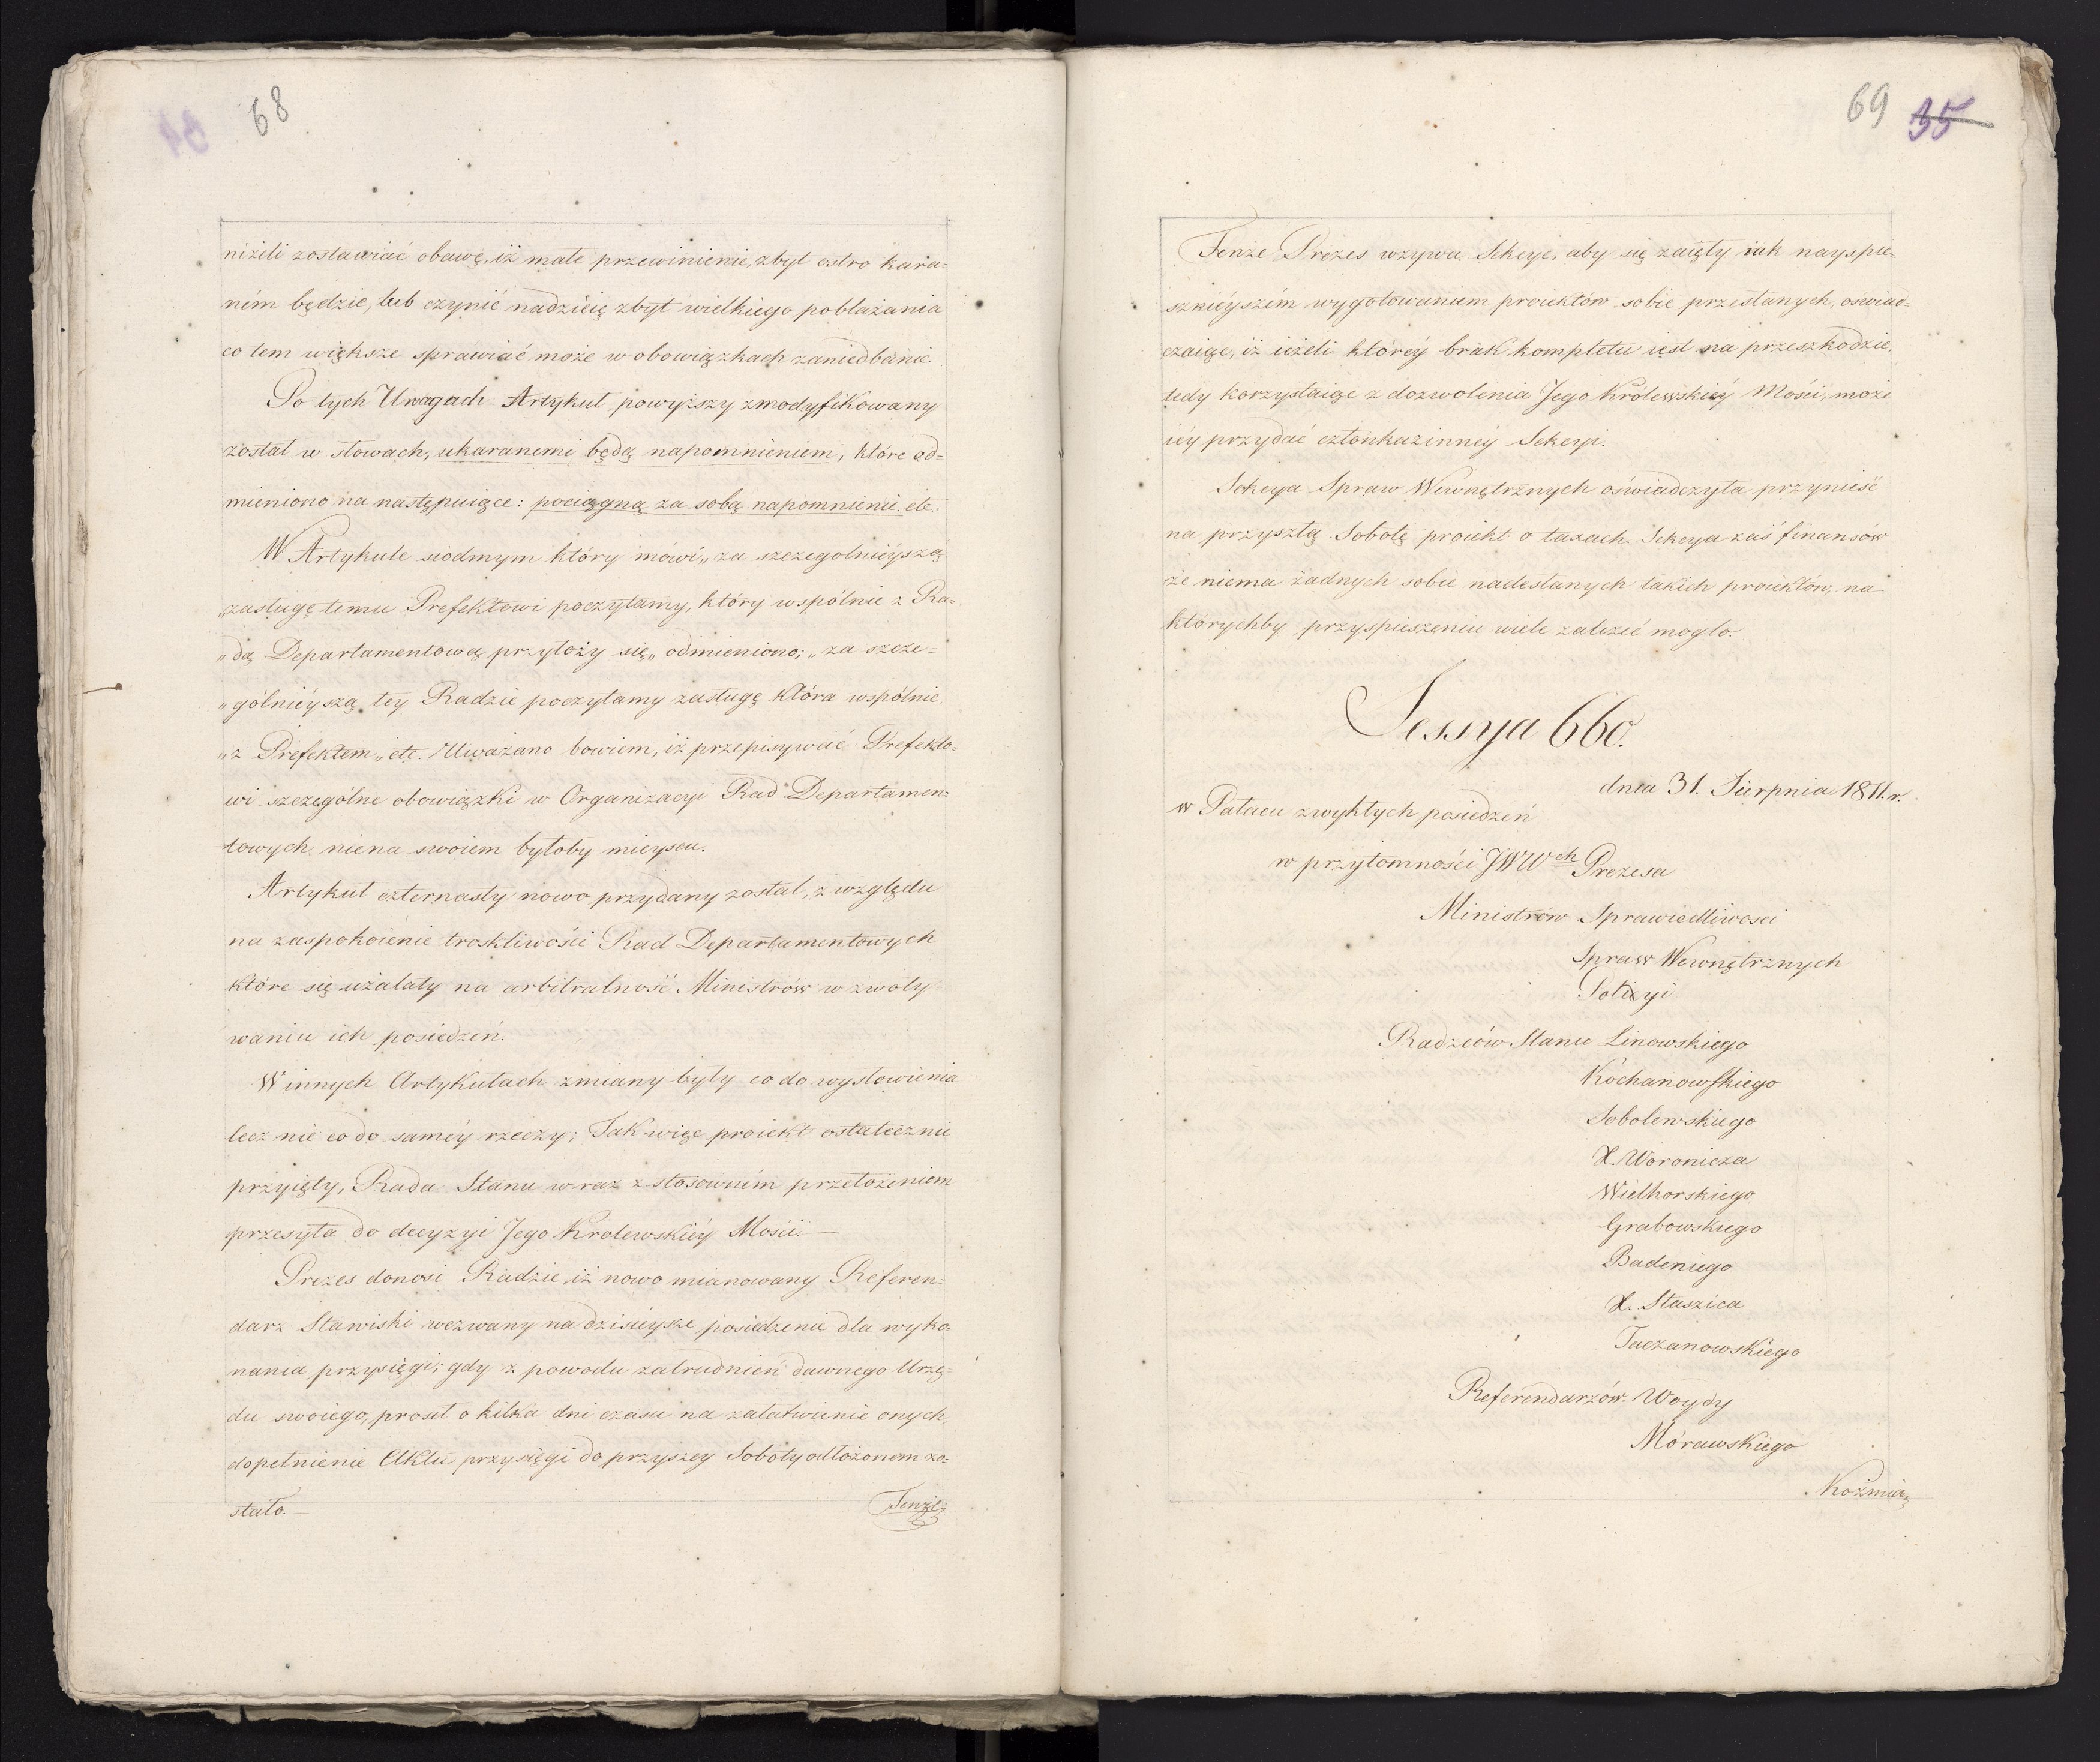 68
niżeli zostawiać obawę, iż małe przewinienie, zbyt ostro kara=
ném będzie, lub czynić nadzieię zbyt wielkiego pobłażania
co tem większe sprawiać może w obowiązkach zaniedbanie.
Po tych Uwagach Artykuł powyższy zmodyfikowany
został w słowach, ukaranemi będą napomnieniem, które od=
mieniono na następuiące: pociągną za sobą napomnienie etc.
W Artykule siodmym który mówi „za szczegolnieyszą
„zasługę temu Prefektowi poczytamy, który wspólnie z Ra=
„dą Departamentową przyłoży się„ odmieniono; „za szcze=
„gólnieyszą tey Radzie poczytamy zasługę która wspólnie
„z Prefektem„ etc. Uważano bowiem, iż przepisywać Prefekto=
wi szczególne obowiązki w Organizacyi Rad Departamen=
towych nie na swoiem byłoby mieyscu.
Artykuł czternasty nowo przydany został, z względu
na zaspokoienie troskliwości Rad Departamentowych
które się użalały na arbitralność Ministrów w zwoły=
waniu ich posiedzeń.
W innych Artykułach zmiany były co do wysłowienia
lecz nie co do saméy rzeczy; Tak więc proiekt ostatecznie
przyięty, Rada Stanu wraz z stosowném przełożeniem
przesyła do decyzyi Jego Krolewskiéy Mości. —
Prezes donosi Radzie, iż nowo mianowany Referen=
darz Stawiski wezwany na dzisieysze posiedzenie dla wyko=
nania przysięgi; gdy z powodu zatrudnień dawnego Urzę=
du swoiego, prosił o kilka dni czasu na załatwienie onych,
dopełnienie Aktu przysięgi do przyszey Soboty odłożonem zo=
stało.
Tenże
69 35
Tenże Prezes wzywa Sekcye, aby się zaięły iak nayspie=
sznieyszém wygotowaniem proiektów sobie przesłanych, oświad=
czaiąc, iż ieżeli któréy brak kompletu iest na przeszkodzie,
tedy korzystaiąc z dozwolenia Jego Królewskiéy Mości, może
iéy przydać członka z innéy Sekcyi.
Sekcya Spraw Wewnętrznych oświadczyła przynieść
na przyszłą Sobotę proiekt o taxach. Sekcya zaś finansów
że niema żadnych sobie nadesłanych takich proiektów, na
którychby przyspieszeniu wiele zależeć mogło.
Sessya 660.
dnia 31. Sierpnia 1811.r.
w Pałacu zwykłych posiedzeń
w przytomności JWWch Prezesa
Ministrów Sprawiedliwosci
Spraw Wewnętrznych
Policyi
Radzców Stanu Linowskiego
Kochanowskiego
Sobolewskiego
X. Woronicza
Wielhorskiego
Grabowskiego
Badeniego
X. Staszica
Taczanowskiego
Referendarzów Woydy
Mórawskiego
Koźmian